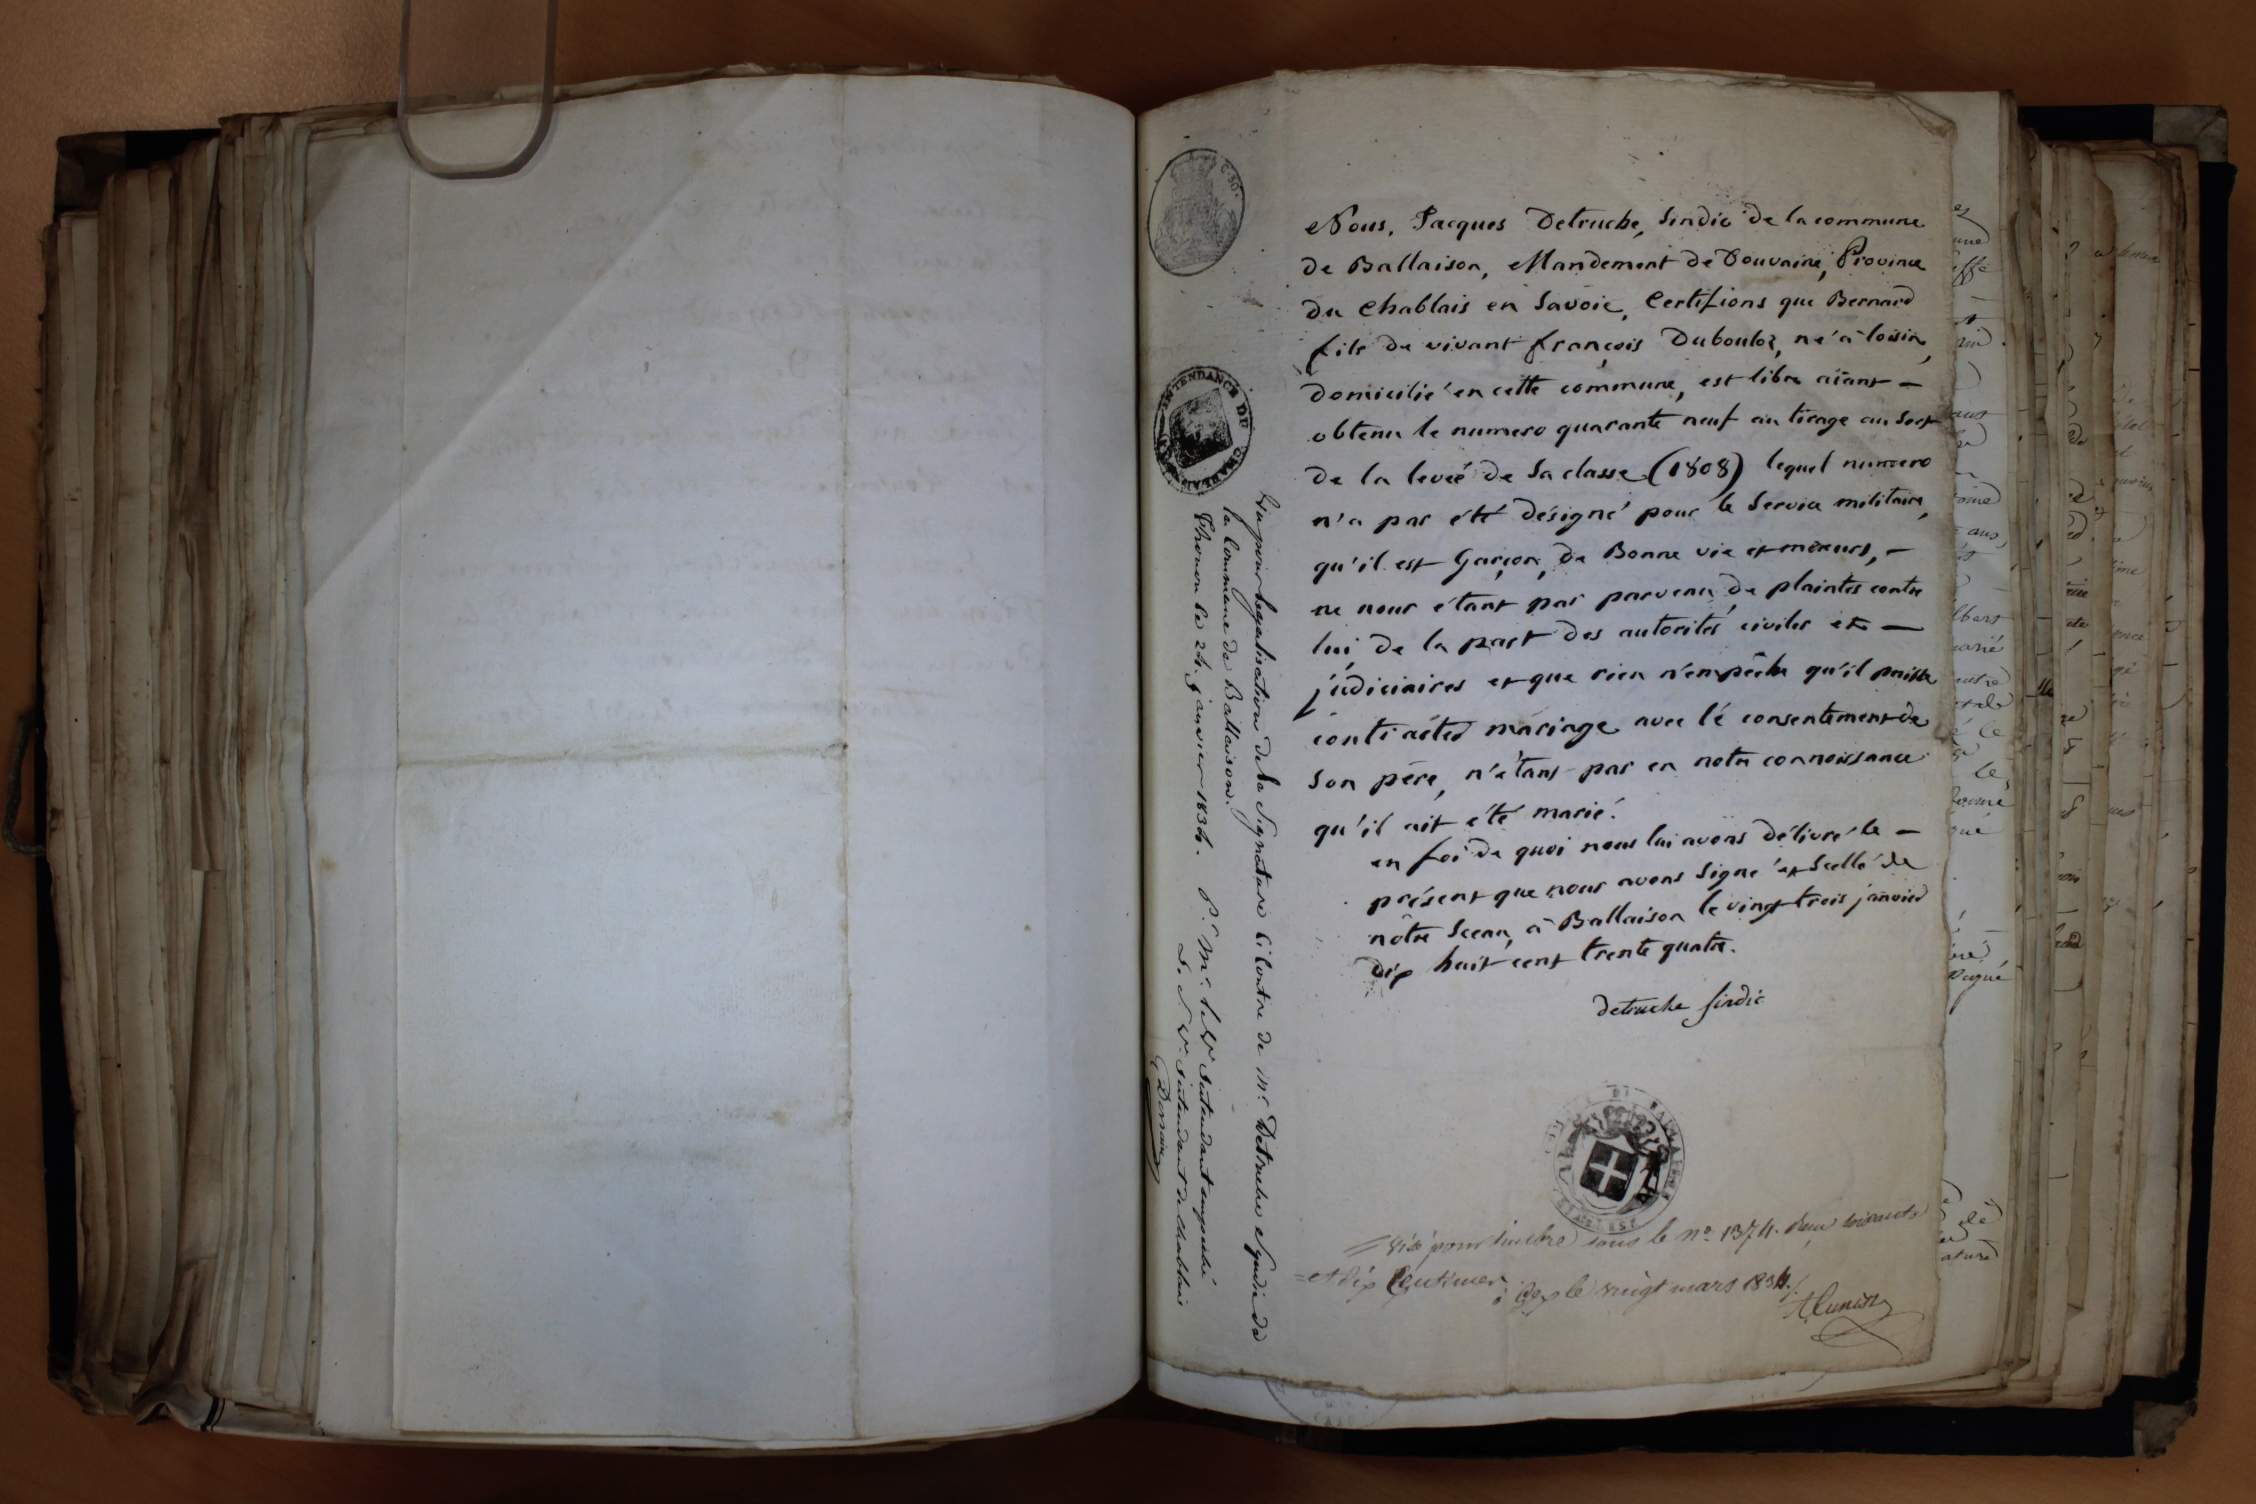 Nous, Jacques Detruche, Sindic de la commune
de Ballaison, Mandement de Douvaine, Province
du Chablais en Savoie, Certifions que Bernard
fils de vivant françois Duboulоz, né à loisin,
domicilié en cette commune, est libre aïant —
obtenu le numero quarante neuf au tirage au sort
de la leveé de Sa classe (1808) lequel numero
n'a pas été désigné pour le Service militaire,
qu'il est Garçon, de Bonne vie et mœurs, —
ne nous étant pas parvenu de plaintes contre
lui de la part des autorités civiles et —
judiciaires et que rien n'empêche qu'il puisse
contracter mariage avec le consentement de
son père, n'étant pas en notre connoissance
qu'il ait été marié.
en foi de quoi nous lui avons délivré le —
présent que nous avons Signé et Scellé de
nôtre Sceau, à Ballaison le vingt trois janvier
dix huit cent trente quatre.
detruche sindic
Visé pour timbre sous le nº 1374. deux
et dix Centimes à Gex le vingt mars 1834.
Vu pour légalisation de la Signature Ci Contre de Mr. Detruche Syndic de
la Commune de Ballaison.
Thonon le 24 janvier 1834.
Pr. Mr. l'Int Intendant empêché
Intendant de Chablais
INTENDANCE DU CHABLAIS
C. 30